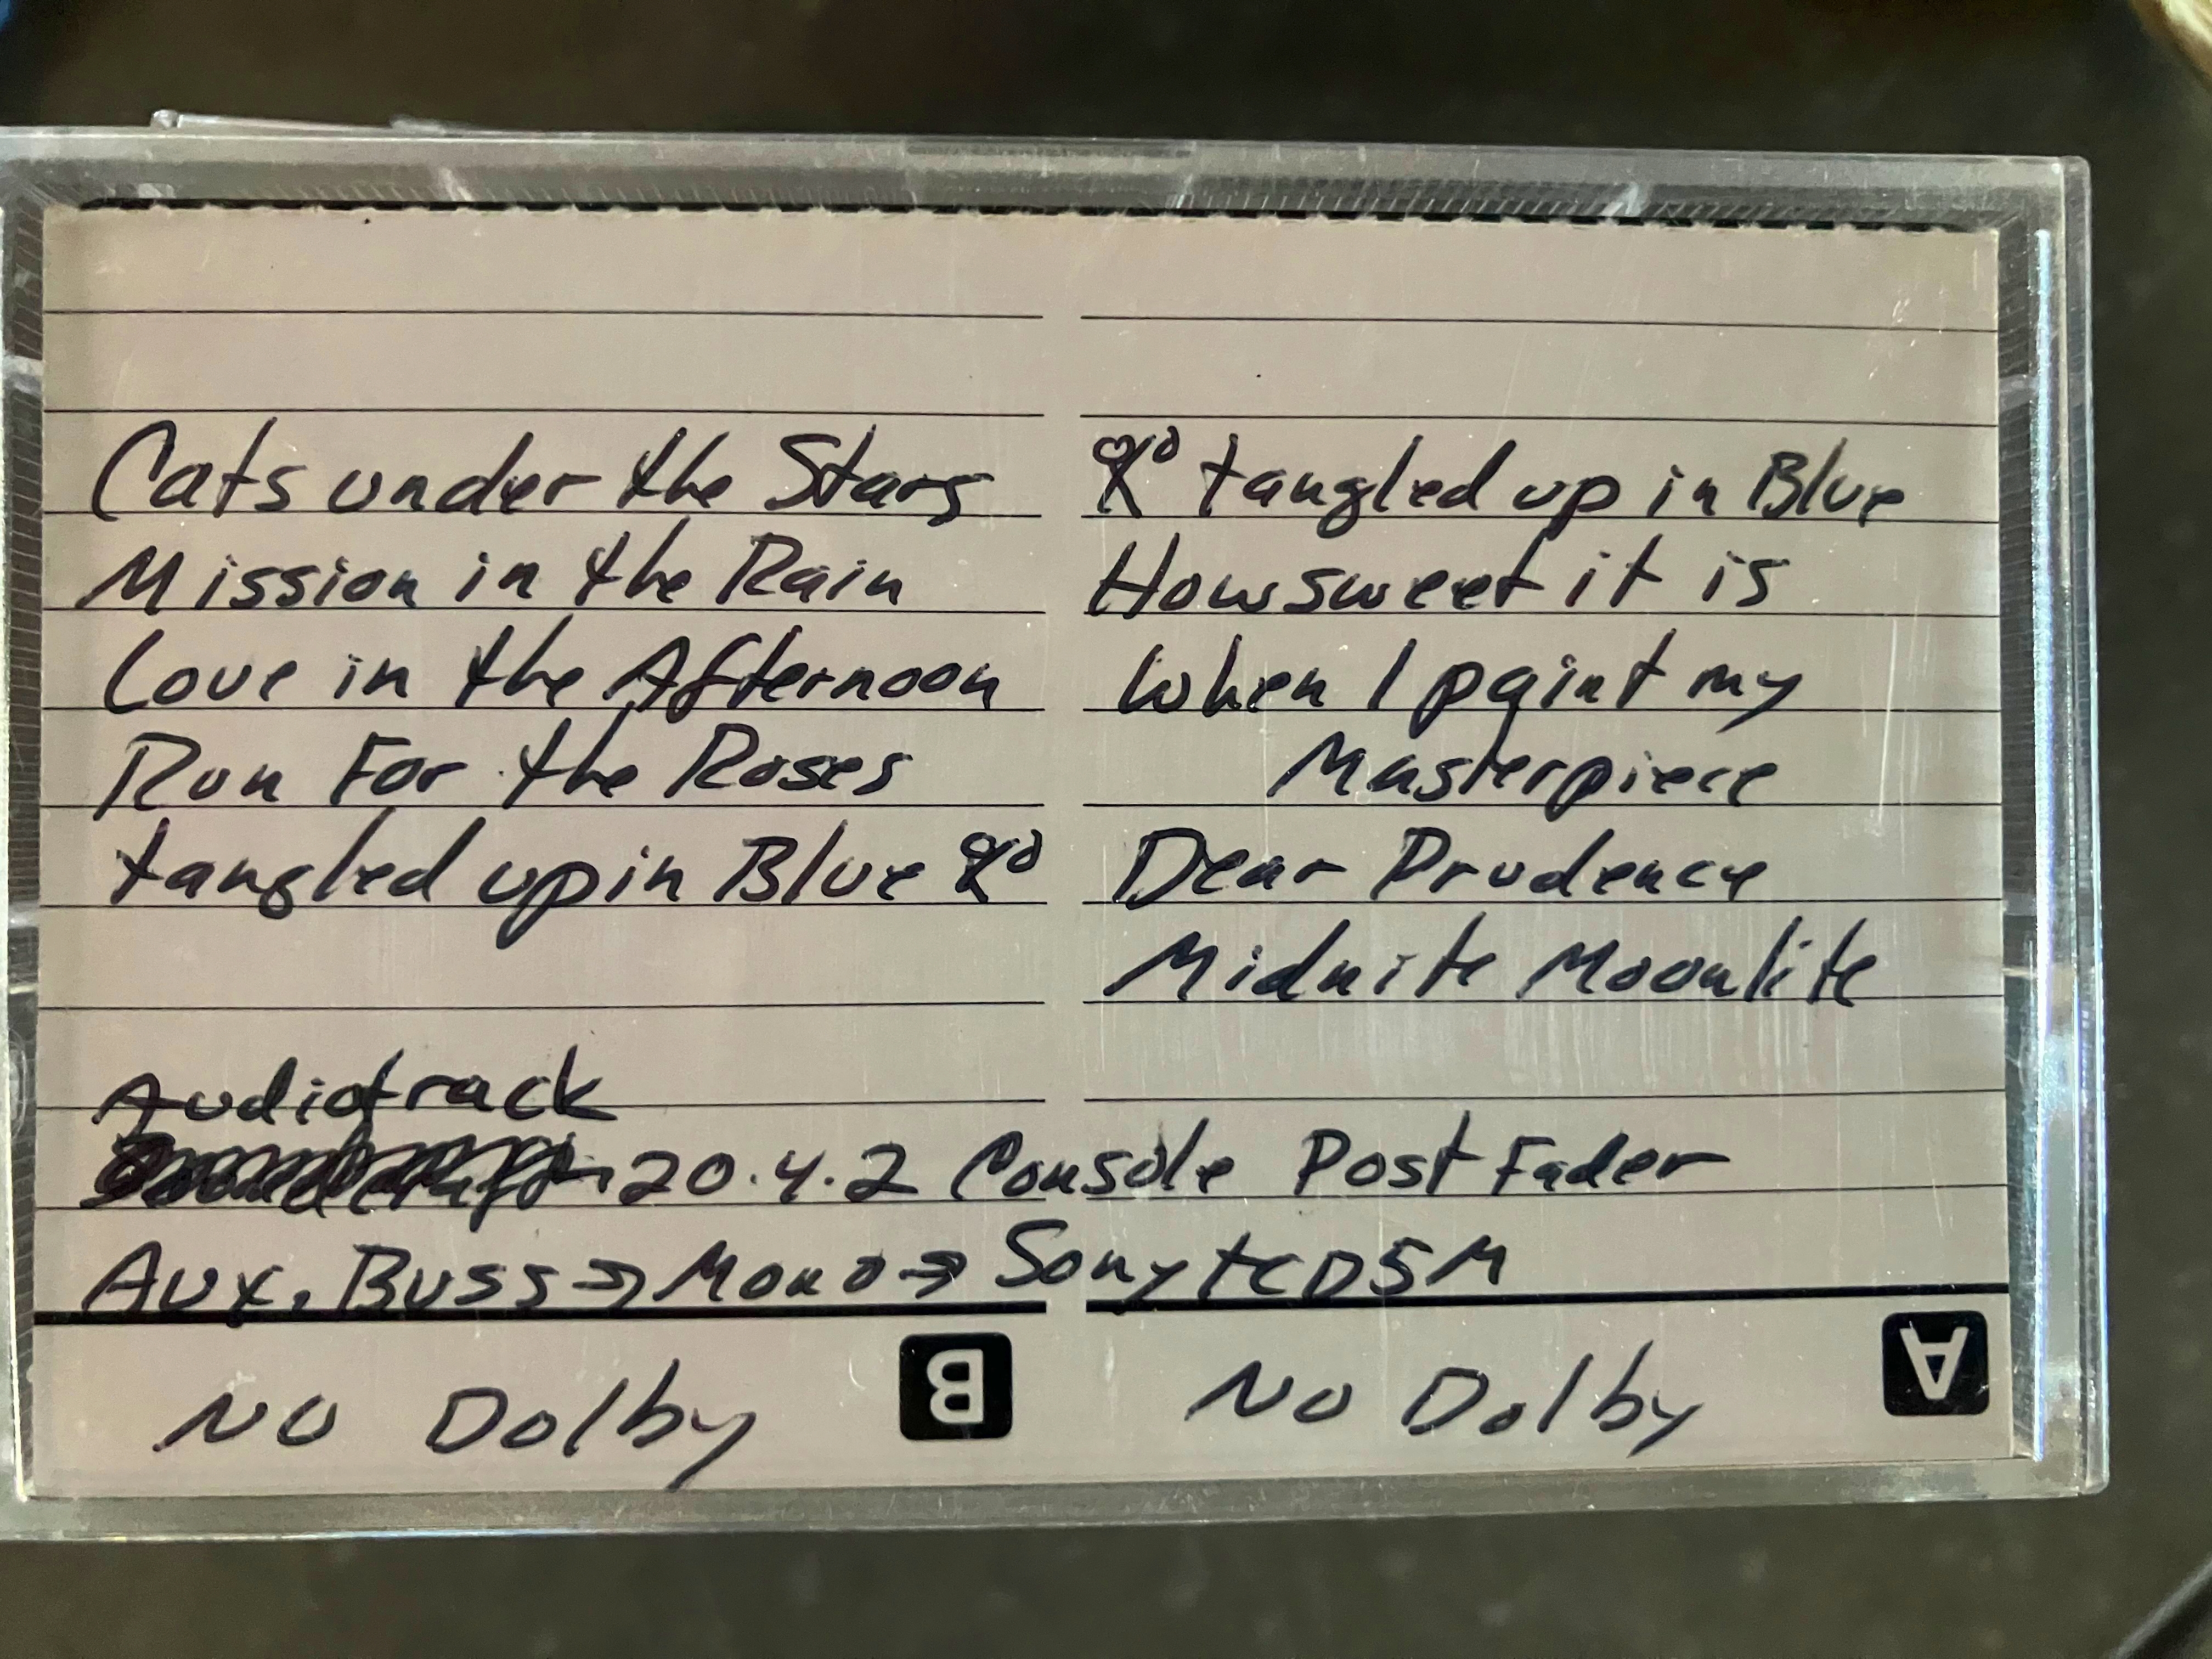 Cats under the Stars
Mission in the Rain
Love in the Afternoon
Run For the Roses
tangled up in Blue
tangled up in Blue
How sweet it is
When I paint my
Masterpiece
Dear Prudence
Midnite Moonlite
Audiotrack
20.4.2 Console Post Fader
Aux. Buss → Mono → Sony TCD5M
NO Dolby
B
NO Dolby
A